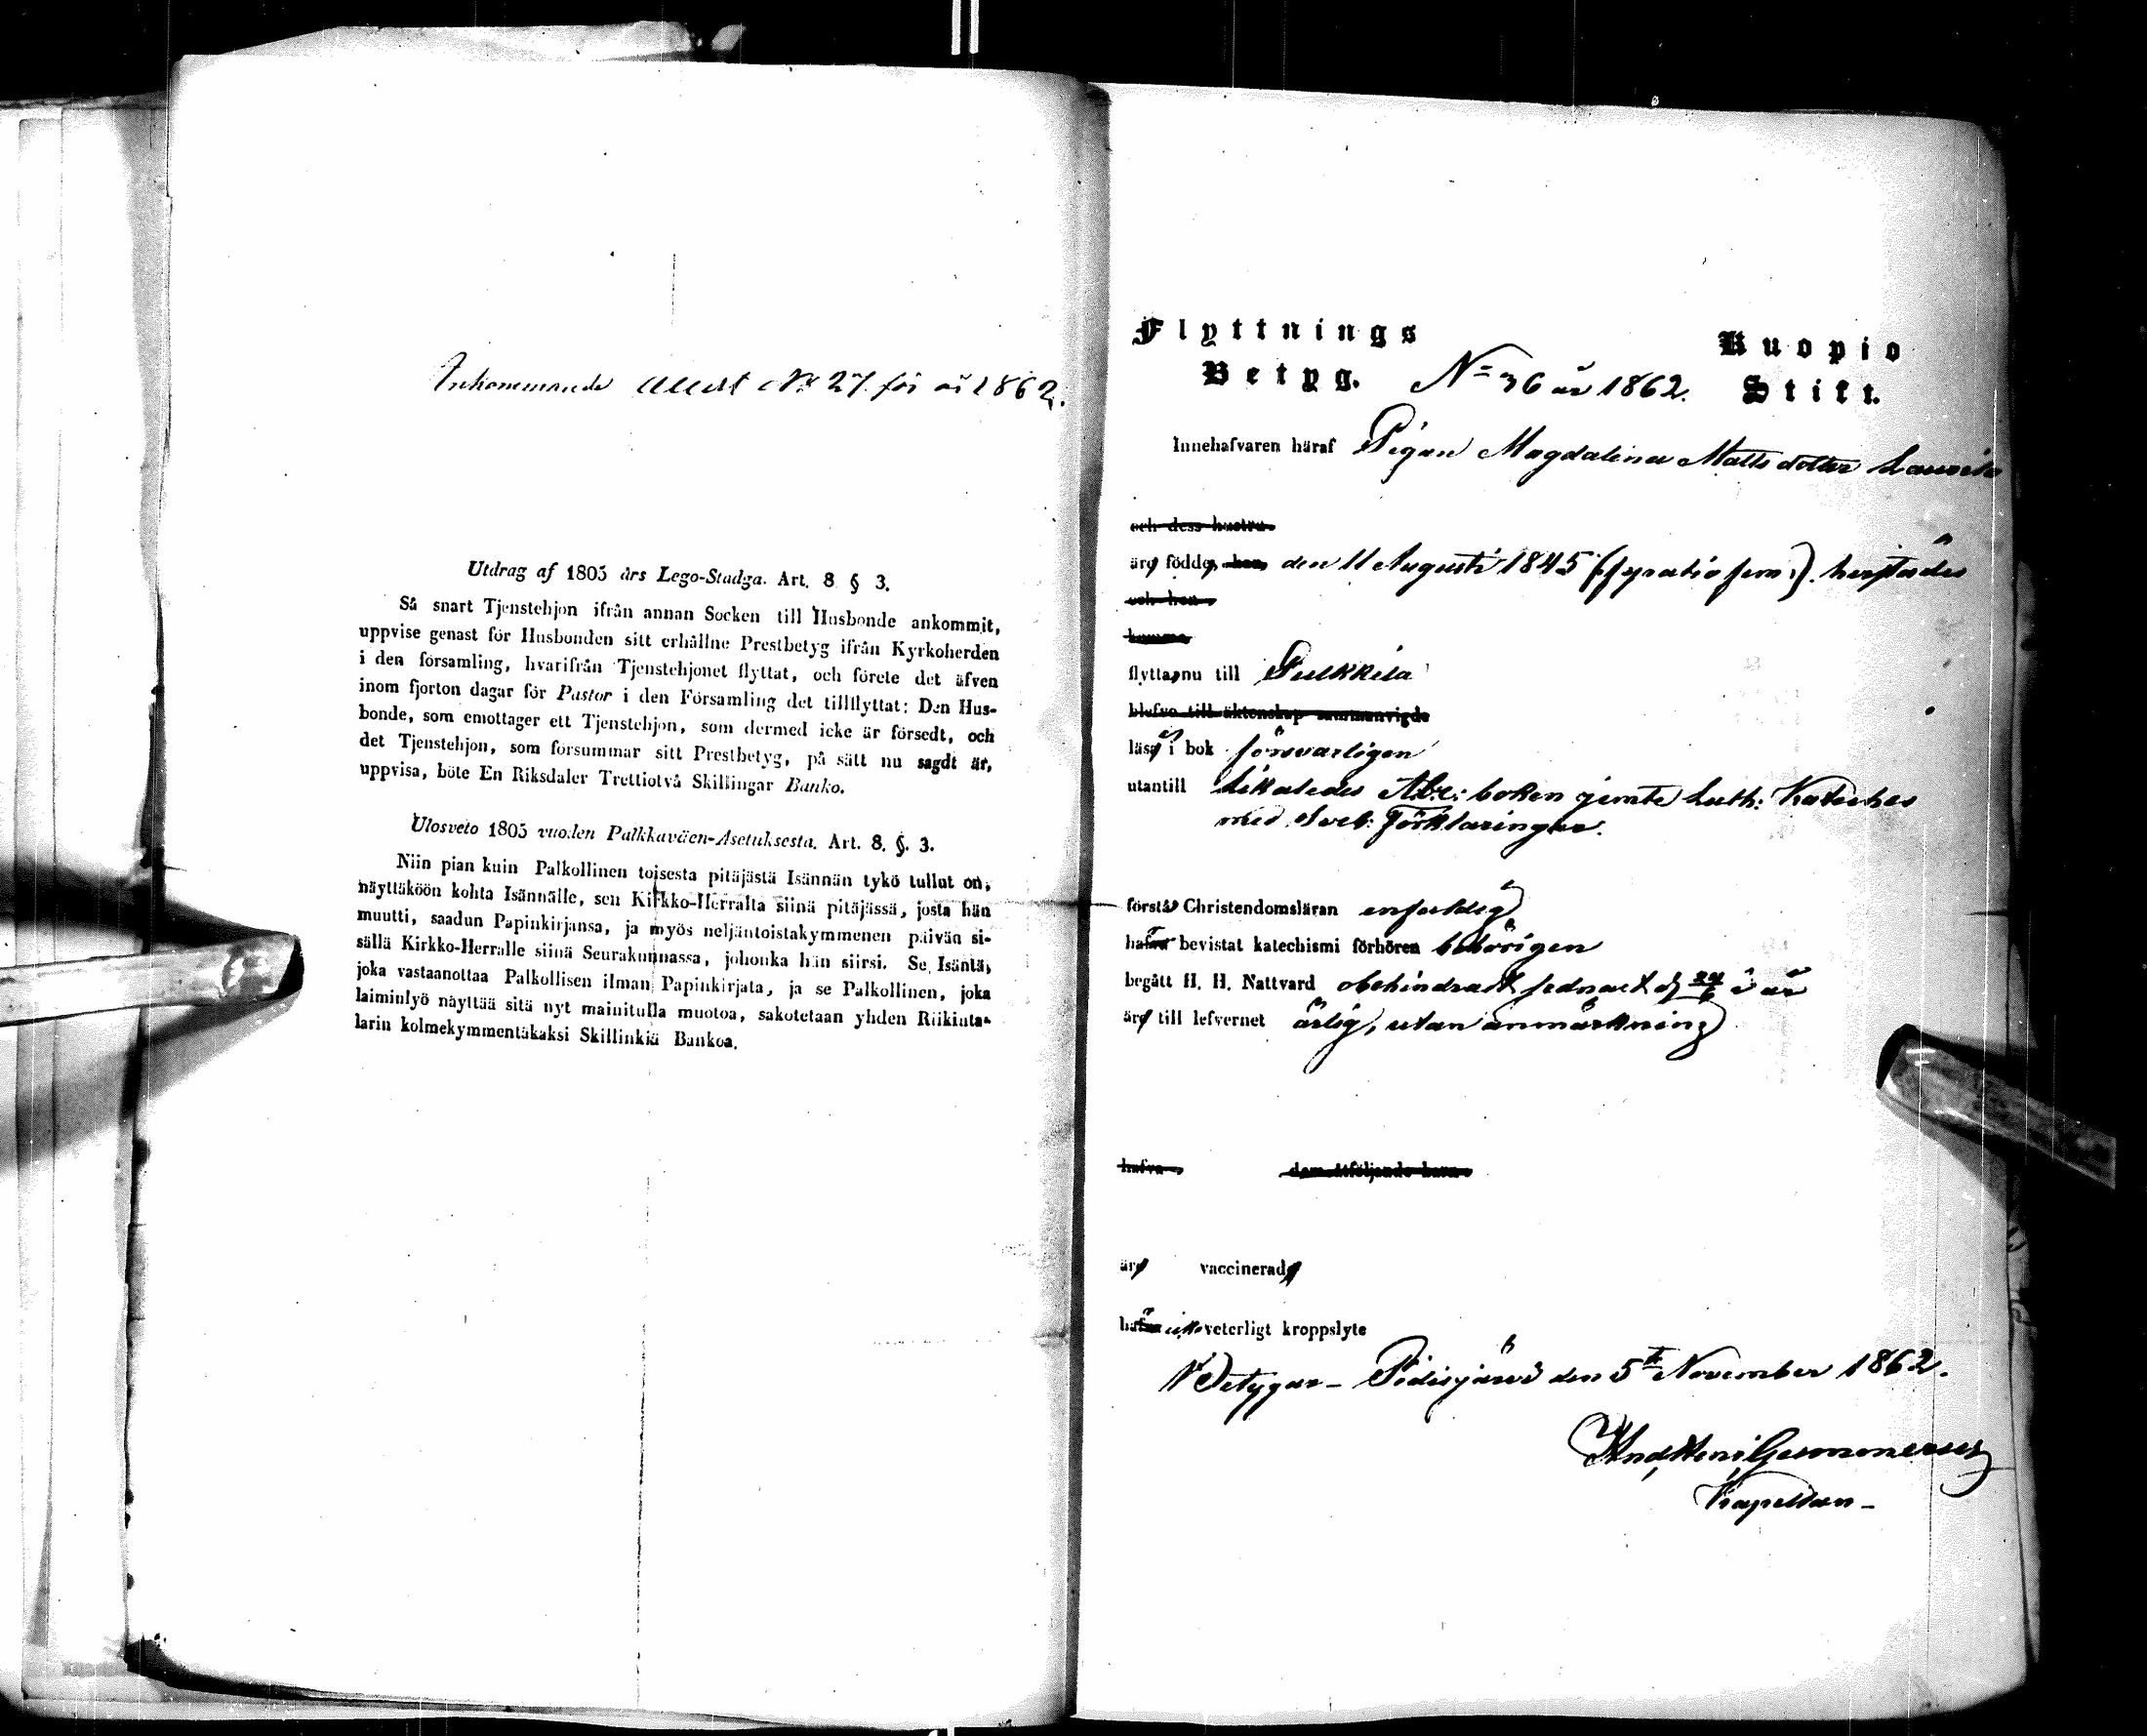 Inkommande Attest No 27. för år 1862.
Utdrag af 1805 års Lego-Stadga. Art. 8 § 3.
Så snart Tjenstehjon ifrån annan Socken till Husbonde ankommit,
uppvise genast för Husbonden sitt erhållne Prestbetyg ifrån Kyrkoherden
i den församling, hvarifrån Tjenstehjonet flyttat, och förete det äfven
inom fjorton dagar för Pastor i den Församling det tillflyttat: Den Hus-
bonde, som emottager ett Tjenstehjon, som dermed icke är försedt, och
det Tjenstehjon, som försummar sitt Prestbetyg, på sätt nu sagdt är,
uppvisa, böte En Riksdaler Trettiotvå Skillingar Banko.
Ulosveto 1805 vuoden Palkkaväen-Asetuksesta. Art. 8. §. 3.
Niin pian kuin Palkollinen toisesta pitäjästä Isännän tykö tullut on,
näyttäköön kohta Isännälle, sen Kirkko-Herralta siinä pitäjässä, josta hän
muutti, saadun Papinkirjansa, ja myös neljäntoistakymmenen päivän si-
sällä Kirkko-Herralle siinä Seurakunnassa, johonka hän siirsi. Se Isäntä,
joka vastaanottaa Palkollisen ilman Papinkirjata, ja se Palkollinen, joka
laiminlyö näyttää sitä nyt mainitulla muotoa, sakotetaan yhden Riikinta-
larin kolmekymmentäkaksi Skillinkiä Bankoa.
Flyttnings
Betyg.
No 36 år 1862.
Kuopio
Stift.
Innehafvaren häraf Pigan Magdalena Matts dotter Laurila
och dess hustru
äro födde, han den 11 Augusti 1845 (fyratio fem:). härstädes
och hon
komma
flytta, nu till Pulkkila
blefvo till äktenskap sammanvigde
läser i bok försvarligen
utantill Likaledes Abc: boken jemte Luth: Kateches
med Sveb: Förklaringar.
förstå Christendomsläran enfaldig
hafva bevistat katechismi förhören behörigen
begått H. H. Nattvard obehindradt sednast d 24/6 i år
äro till lefvernet ärlig, utan anmärkning
hafva dem åtföljande barn
äro vaccinerade
hafva icke veterligt kroppslyte
Betygar - Pidisjärvi den 5te November 1862.
And Henr
Kapellan -